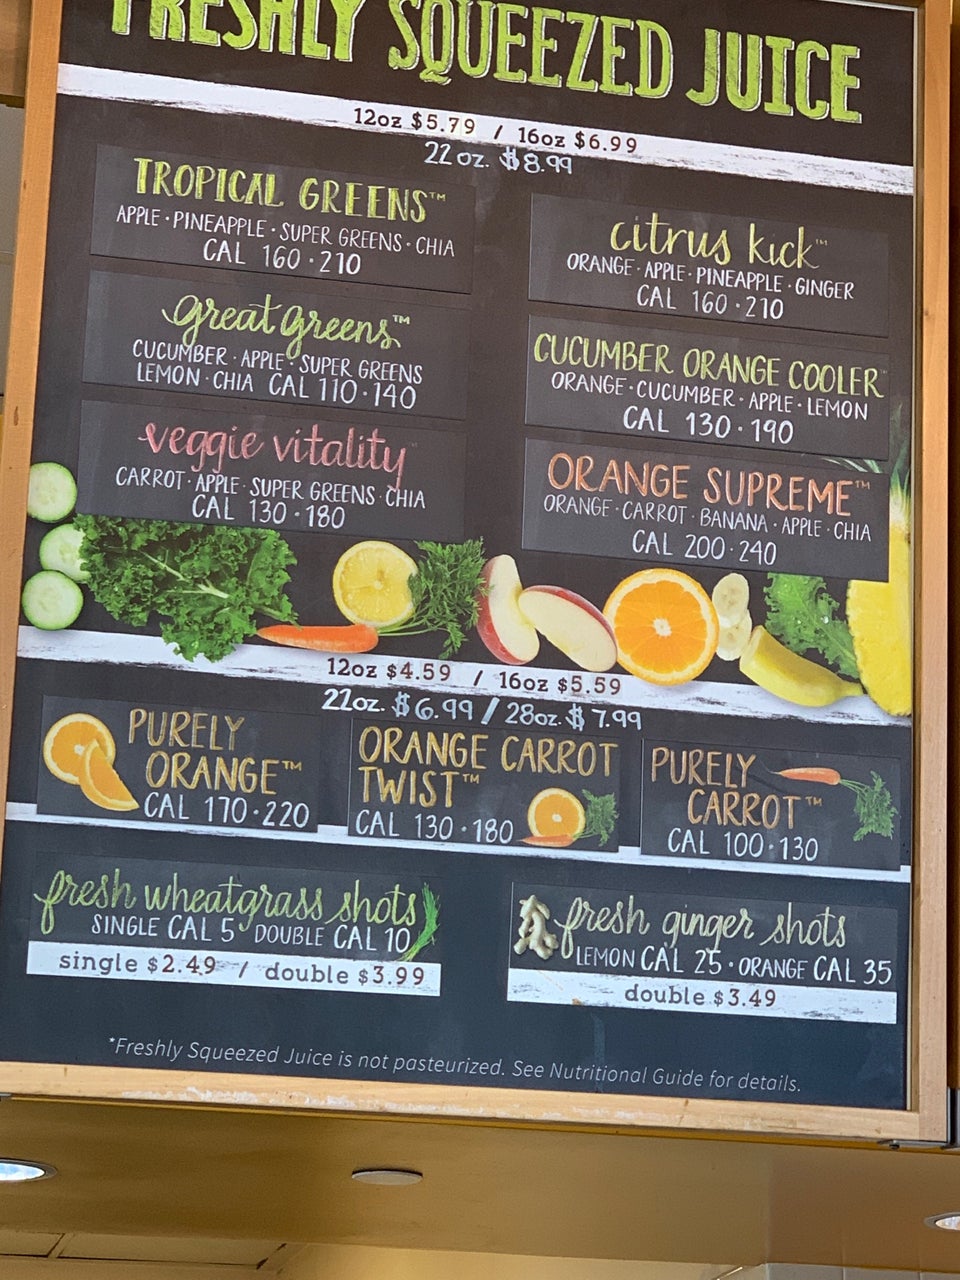 FRESHLY SQUEEZED JUICE
12oz $5.79 / 16oz $6.99
22 oz. $8.99
TROPICAL GREENS™
APPLE · PINEAPPLE · SUPER GREENS · CHIA
CAL 160 · 210
great greens™
CUCUMBER · APPLE · SUPER GREENS
LEMON · CHIA CAL 110 · 140
veggie vitality
CARROT · APPLE · SUPER GREENS · CHIA
CAL 130 · 180
citrus kick™
ORANGE · APPLE · PINEAPPLE · GINGER
CAL 160 · 210
CUCUMBER ORANGE COOLER™
ORANGE · CUCUMBER · APPLE · LEMON
CAL 130 · 190
ORANGE SUPREME™
ORANGE · CARROT · BANANA · APPLE · CHIA
CAL 200 · 240
12oz $4.59 / 16oz $5.59
22oz. $6.99 / 28oz. $7.99
PURELY
ORANGE™
CAL 170 · 220
ORANGE CARROT
TWIST™
CAL 130 · 180
PURELY
CARROT™
CAL 100 · 130
fresh wheatgrass shots
SINGLE CAL 5 DOUBLE CAL 10
single $2.49 / double $3.99
fresh ginger shots
LEMON CAL 25 · ORANGE CAL 35
double $3.49
*Freshly Squeezed Juice is not pasteurized. See Nutritional Guide for details.